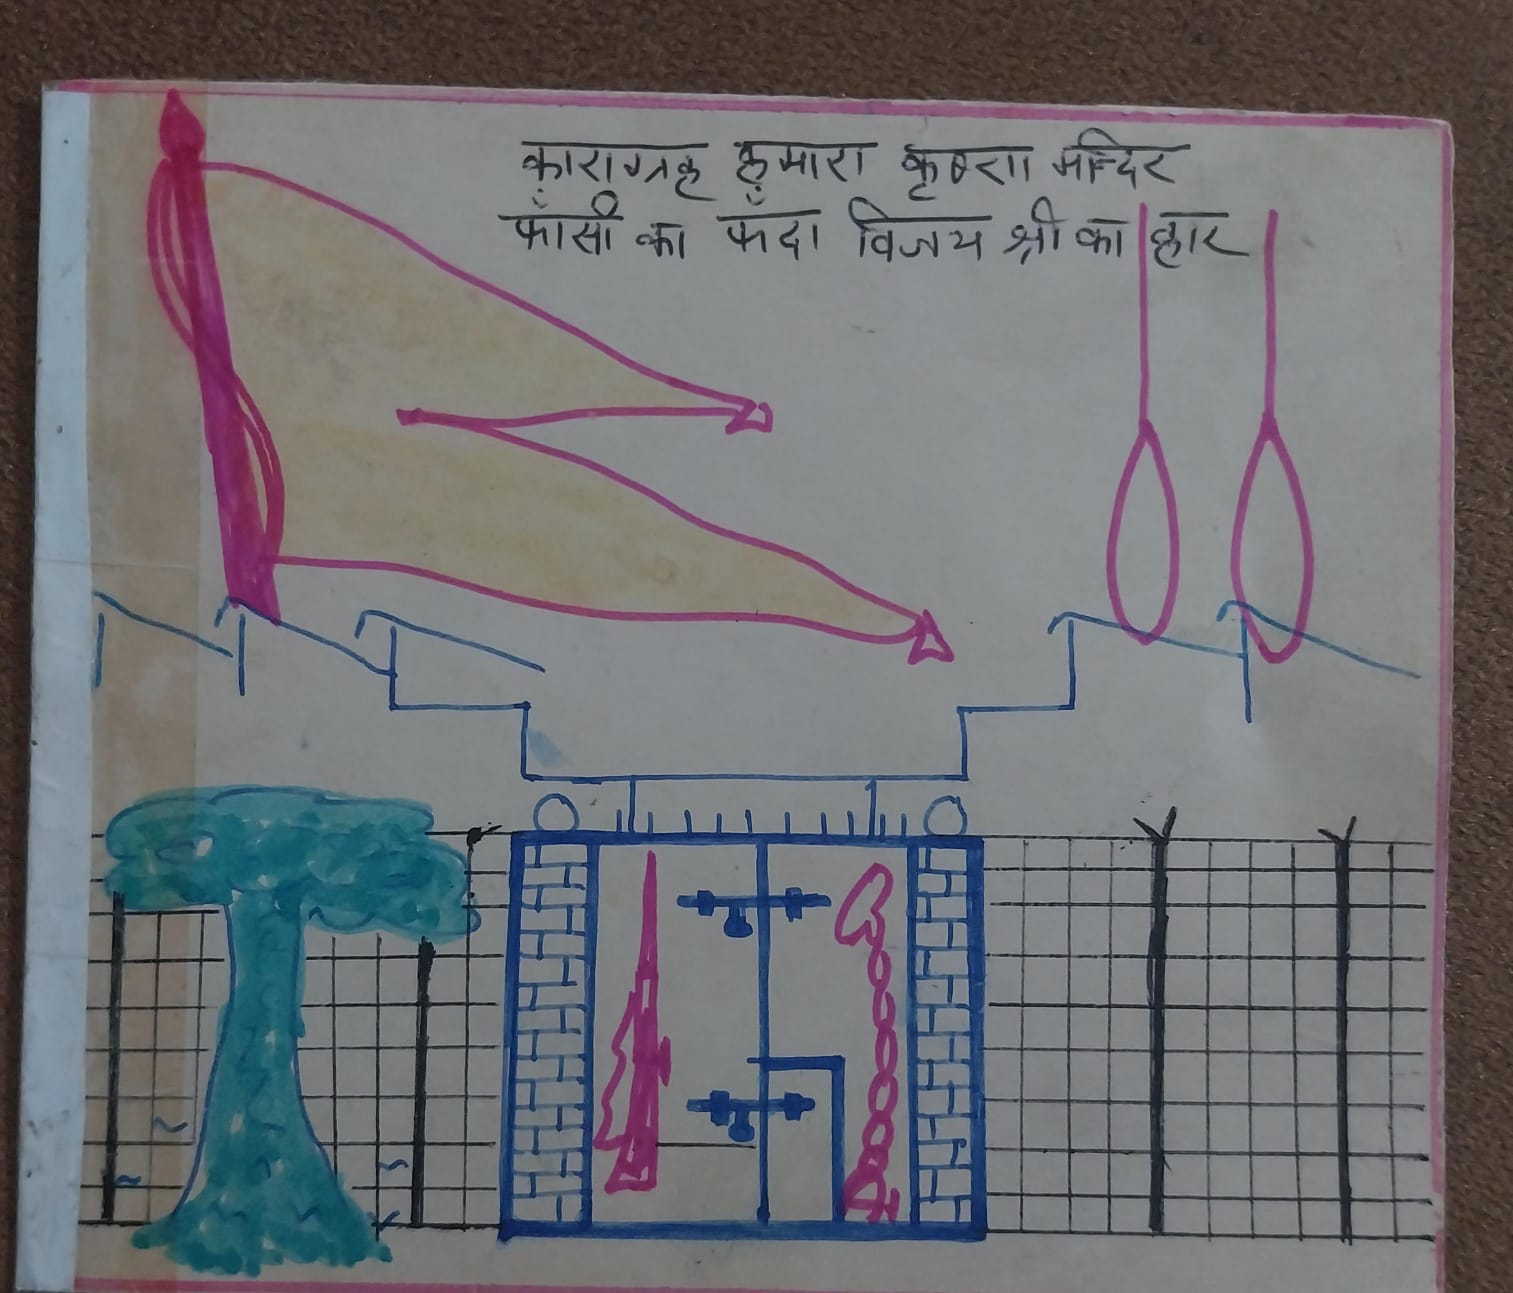 काराग्रह हमारा कृष्ण मन्दिर
फाँसी का फँदा विजय श्री का हार